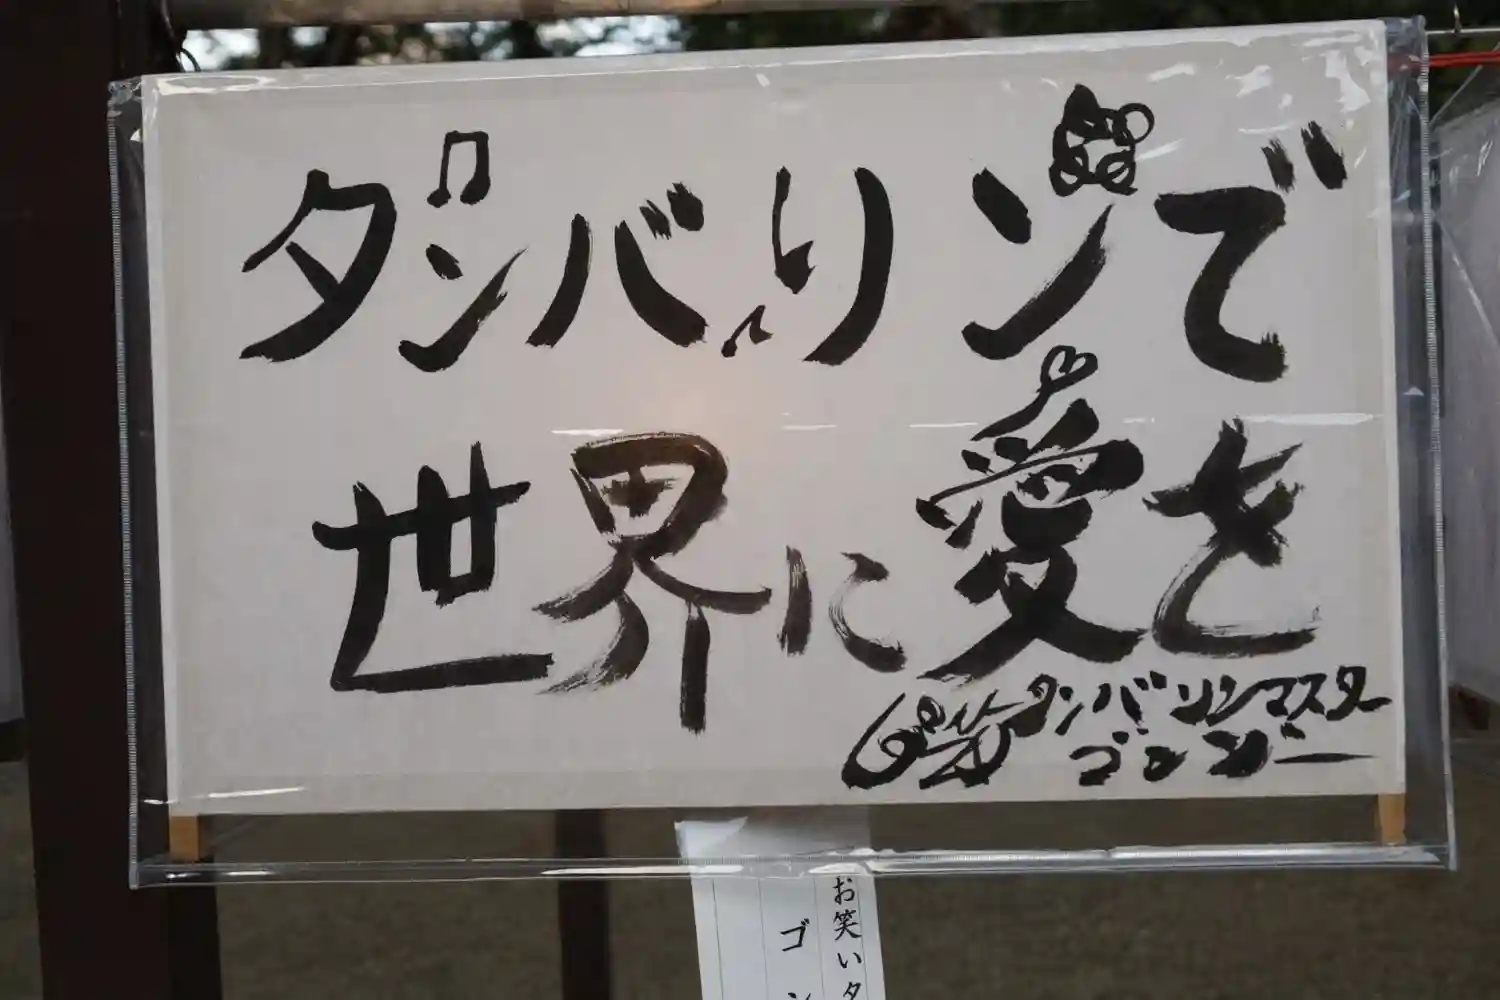 タンバリンで
世界に愛を
タンバリンマスター
ゴンゾー
お笑いタ
ゴン